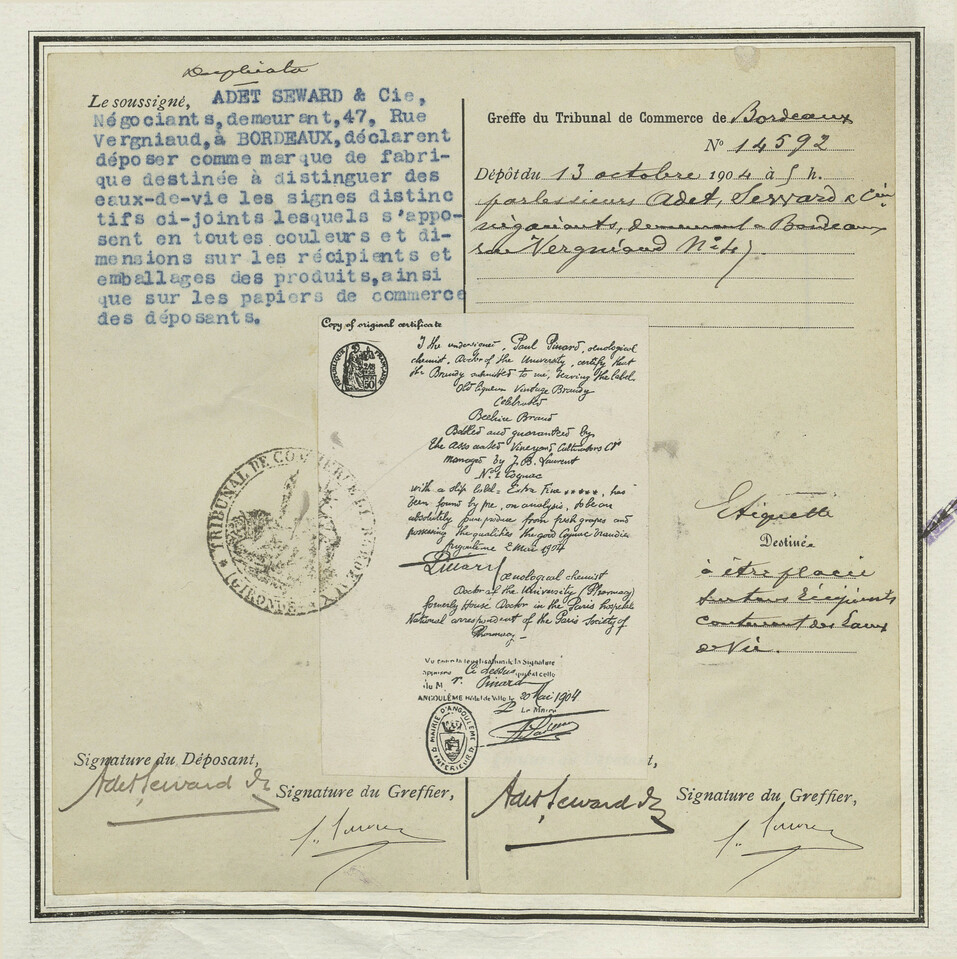 Duplicata
Le soussigné, ADET SEWARD & Cie,
Négociants, demeurant, 47, Rue
Vergniaud, à BORDEAUX, déclarent
déposer comme marque de fabri-
que destinée à distinguer des
eaux-de-vie les signes distinc
tifs ci-joints lesquels s'appo-
sent en toutes couleurs et di-
mensions sur les récipients et
emballages des produits, ainsi
que sur les papiers de commerce
des déposants.
Greffe du Tribunal de Commerce de Bordeaux
No 14592
Dépôt du 13 octobre 1904 à 5 h.
par Messieurs Adet, Seward & Cie
négociants, demeurant à Bordeaux
rue Vergniaud No 47.
Copy of original certificate
RÉPUBLIQUE FRANÇAISE
I the undersigned, Paul Pinard, œnological
chemist, Doctor of the University, certify that
the Brandy submitted to me, bearing the label.
Old Liqueur Vintage Brandy
Celebrated
Beehive Brand
Bottled and guaranteed by
the Associated Vineyard Cultivators Co
managed by J. B. Laurent
Cognac
with a slip label = Extra Fine *****, has
been found by me, on analysis, to be an
absolutely pure produce from fresh grapes and
possessing the qualities the good Cognac brandies
Angoulême 2 Mai 1904
Pinard
œnological chemist
Doctor of the University (Pharmacy)
formerly House Doctor in the Paris hospitals
National correspondent of the Paris Society of
Pharmacy
Vu pour la légalisation de la Signature
apposée Ci dessus
de M. P. Pinard
ANGOULÊME Hôtel de Ville le 20 Mai 1904
Le Maire
MAIRIE D'ANGOULÊME
INTÉRIEUR
TRIBUNAL DE COMMERCE DE BORDEAUX
Etiquette
Destinée
à être placée
sur tous Récipients
contenant des Eaux
de Vie.
Signature du Déposant,
Adet Seward
Signature du Greffier,
t,
Adet Seward
Signature du Greffier,